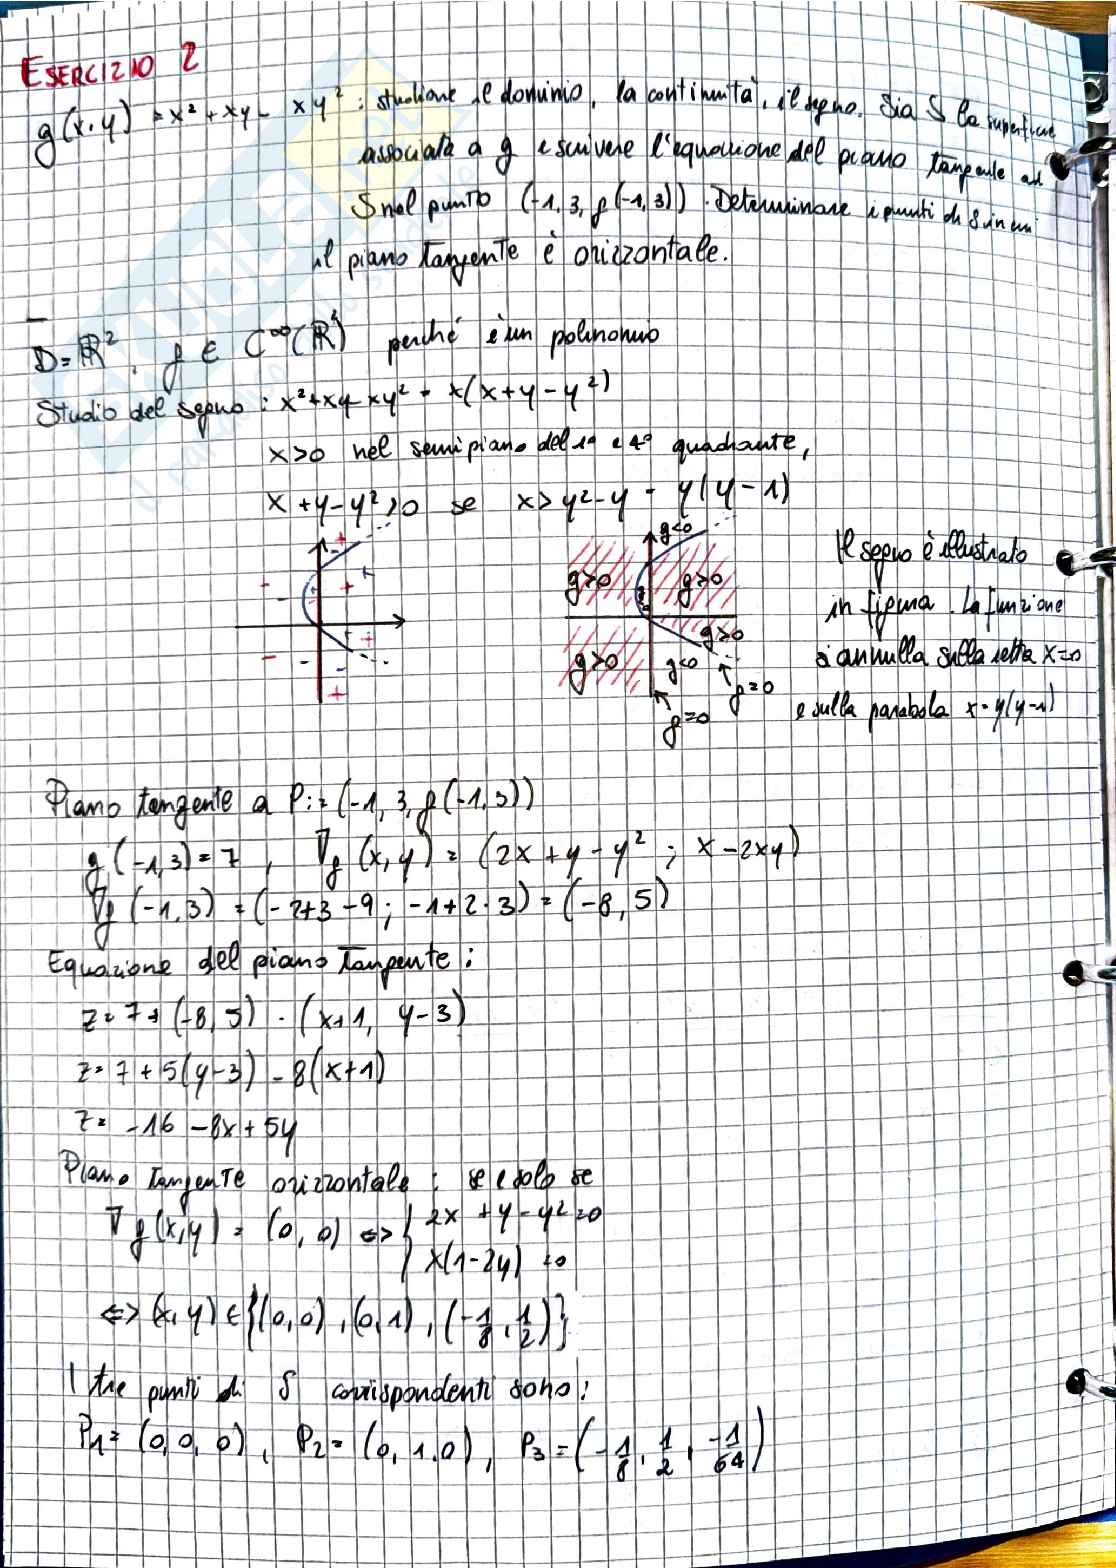 ESERCIZIO 2
g(x,y) = x² + xy - xy² : studiare il dominio, la continuità, il segno. Sia S la superficie
associata a g e scrivere l'equazione del piano tangente ad
S nel punto (-1, 3, g(-1,3)). Determinare i punti di S in cui
il piano tangente è orizzontale.
D = ℝ², g ∈ C^∞(ℝ²) perché è un polinomio
Studio del segno : x² + xy - xy² = x(x+y-y²)
x>0 nel semipiano del 1° e 4° quadrante,
x+y-y²>0 se x>y²-y = y(y-1)
g<0
g>0 g>0
g>0
g>0 g<0
g=0
g=0
Il segno è illustrato
in figura. La funzione
si annulla sulla retta x=0
e sulla parabola x=y(y-1)
Piano tangente a P:=(-1, 3, g(-1,3))
g(-1,3) = 7, ∇g(x,y) = (2x+y-y² ; x-2xy)
∇g(-1,3) = (-2+3-9 ; -1+2·3) = (-8,5)
Equazione del piano tangente :
z = 7 + (-8,5) · (x+1, y-3)
z = 7 + 5(y-3) - 8(x+1)
z = -16 - 8x + 5y
Piano tangente orizzontale : se e solo se
∇g(x,y) = (0,0) <=> { 2x + y - y² = 0
x(1-2y) = 0
<=> (x,y) ∈ {(0,0), (0,1), (-1/8, 1/2)}
I tre punti di S corrispondenti sono :
P₁ = (0,0,0), P₂ = (0,1,0), P₃ = (-1/8, 1/2, -1/64)